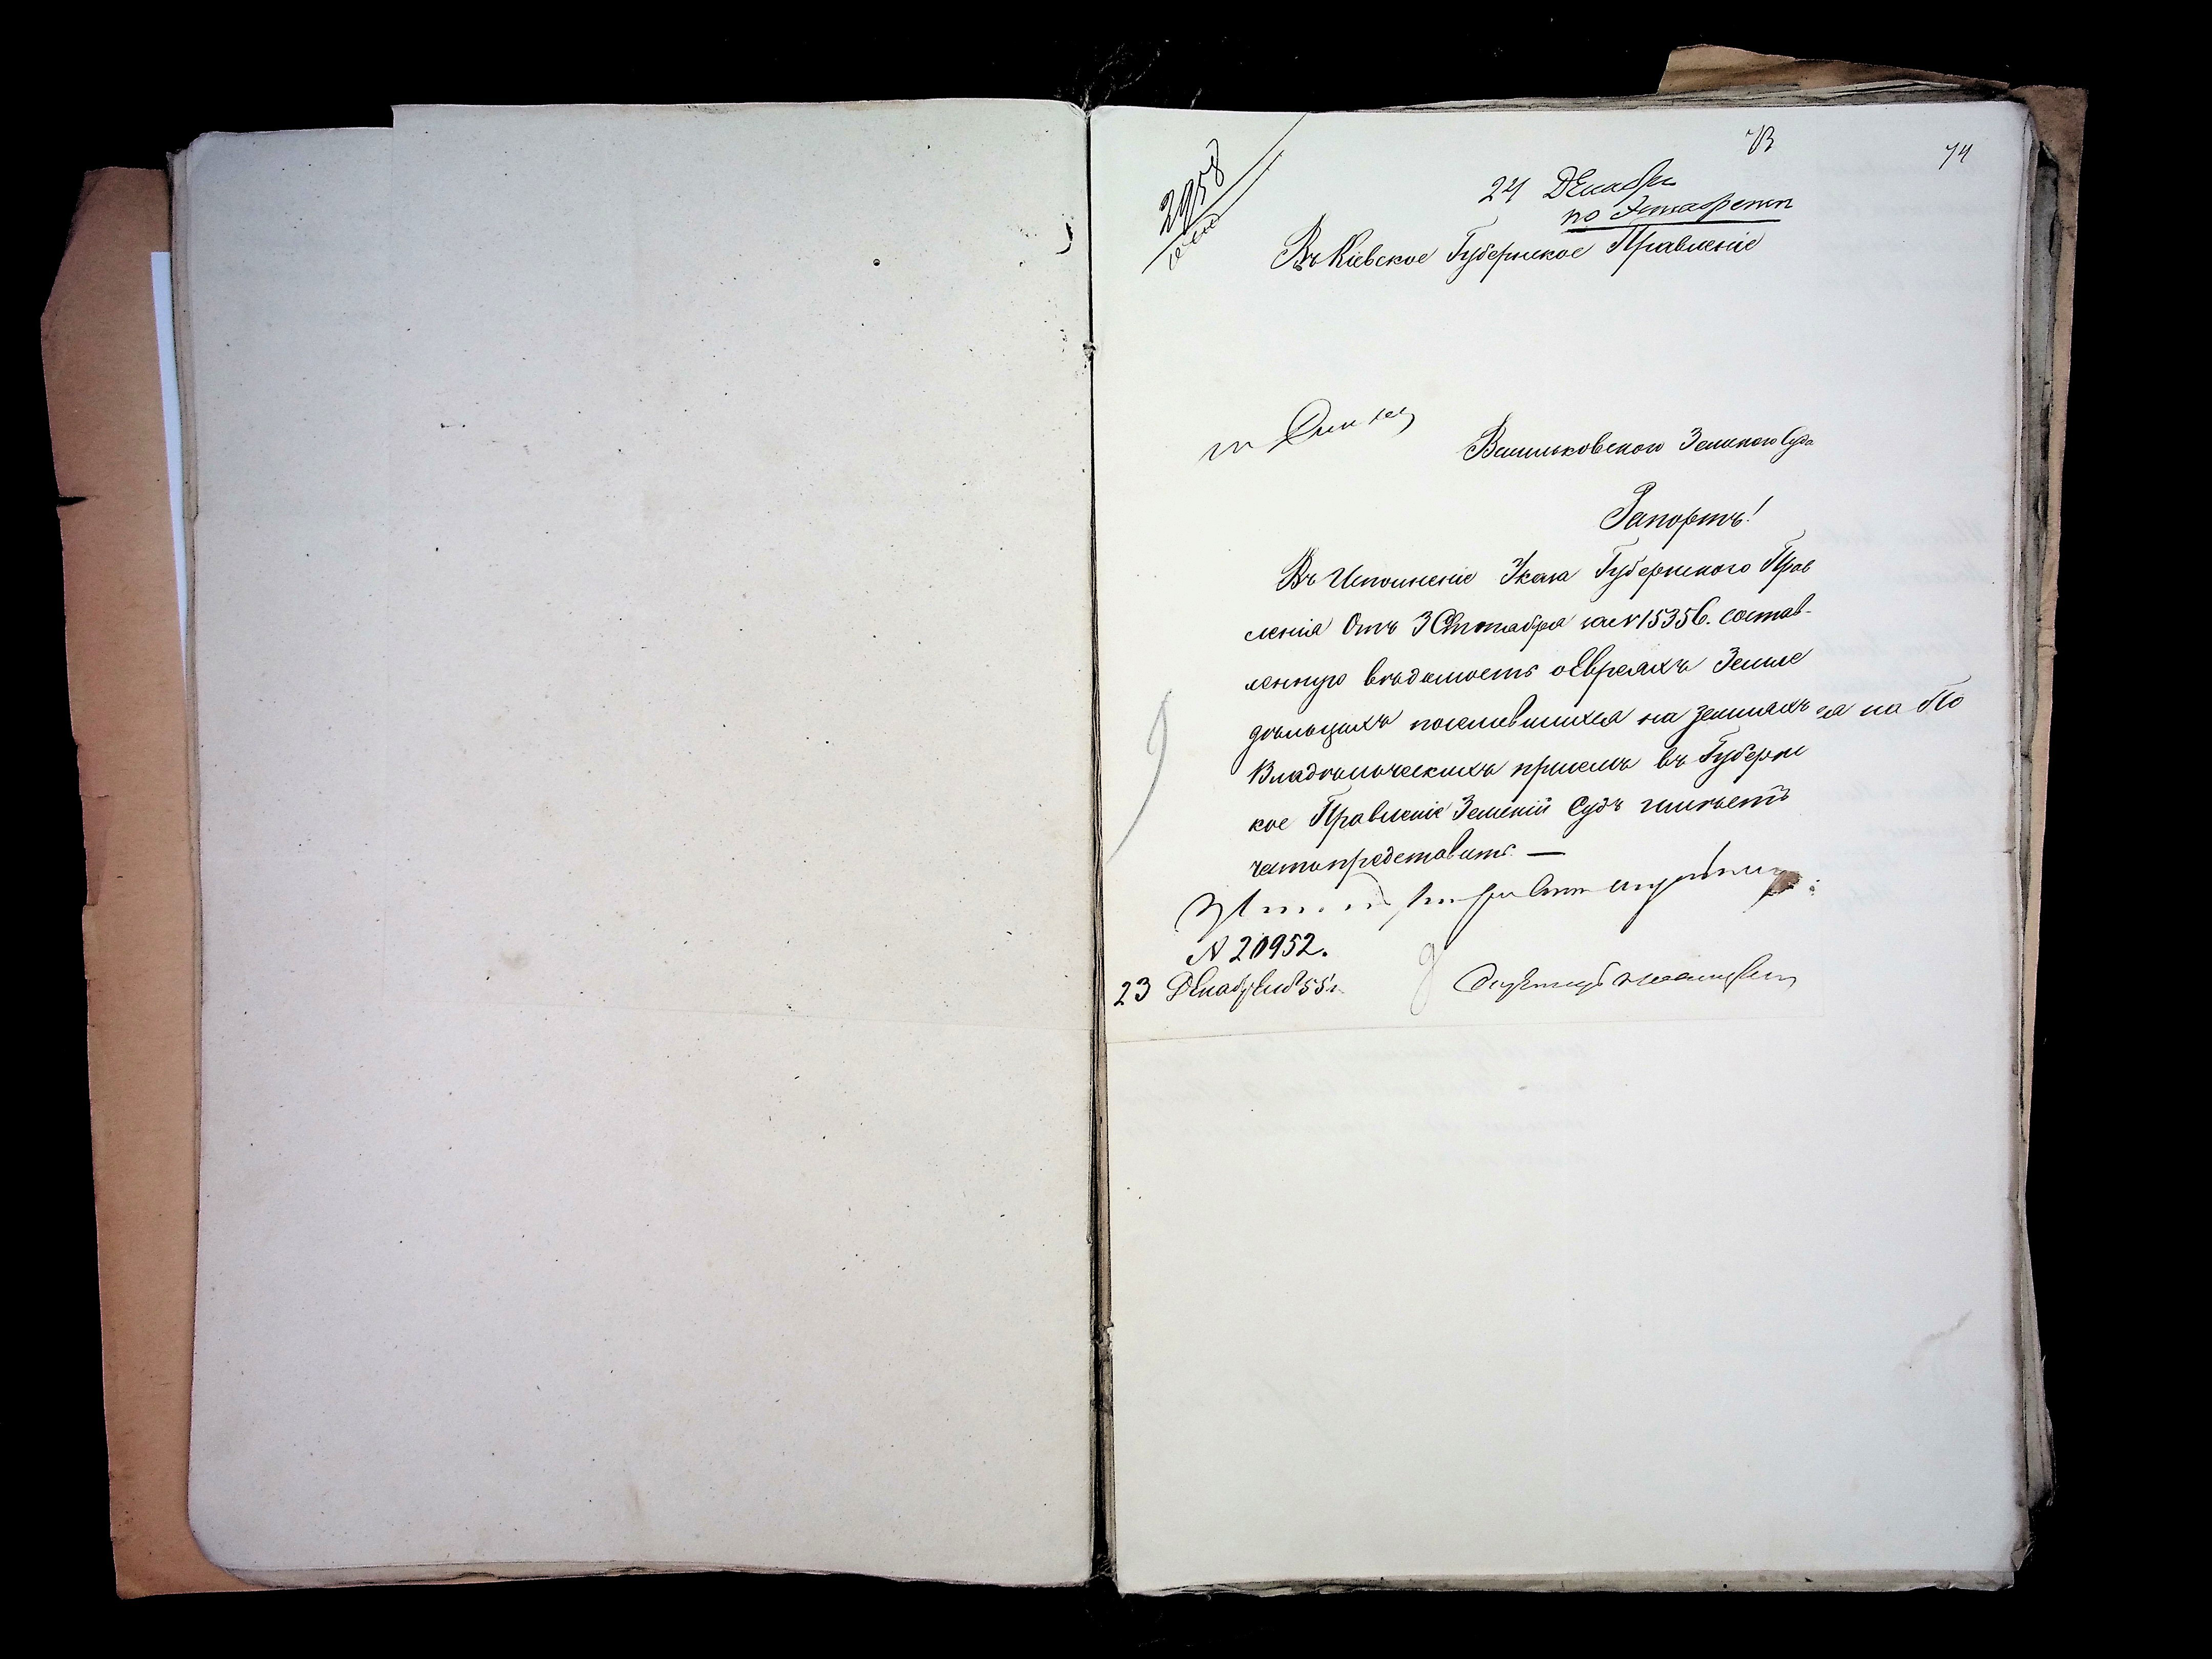 73
74
2958
24 Декабря
по Эштафетѣ
Въ Кіевское Губернское Правленіе
Васильковского Земского Суда
Рапортъ!
Въ Исполненіе Указа Губернского Прав
ленія Отъ 3 Сентября за № 15356. состав-
ленную вѣдомость о Евреяхъ Земле
дѣльцахъ поселившихся на земляхъ
ся на По
Владѣльческихъ присемъ въ Губернс
кое Правленіе Земскій Судъ имѣетъ
честь представить. —
№ 20952.
23 Декабря 855 г.